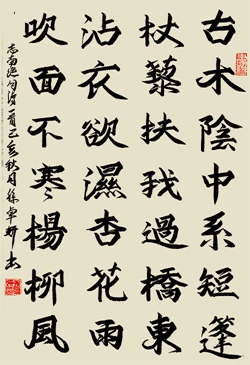 古木陰中系短篷
杖藜扶我過橋東
沾衣欲濕杏花雨
吹面不寒楊柳風
志南絕句詩一首己亥秋月徐卓書